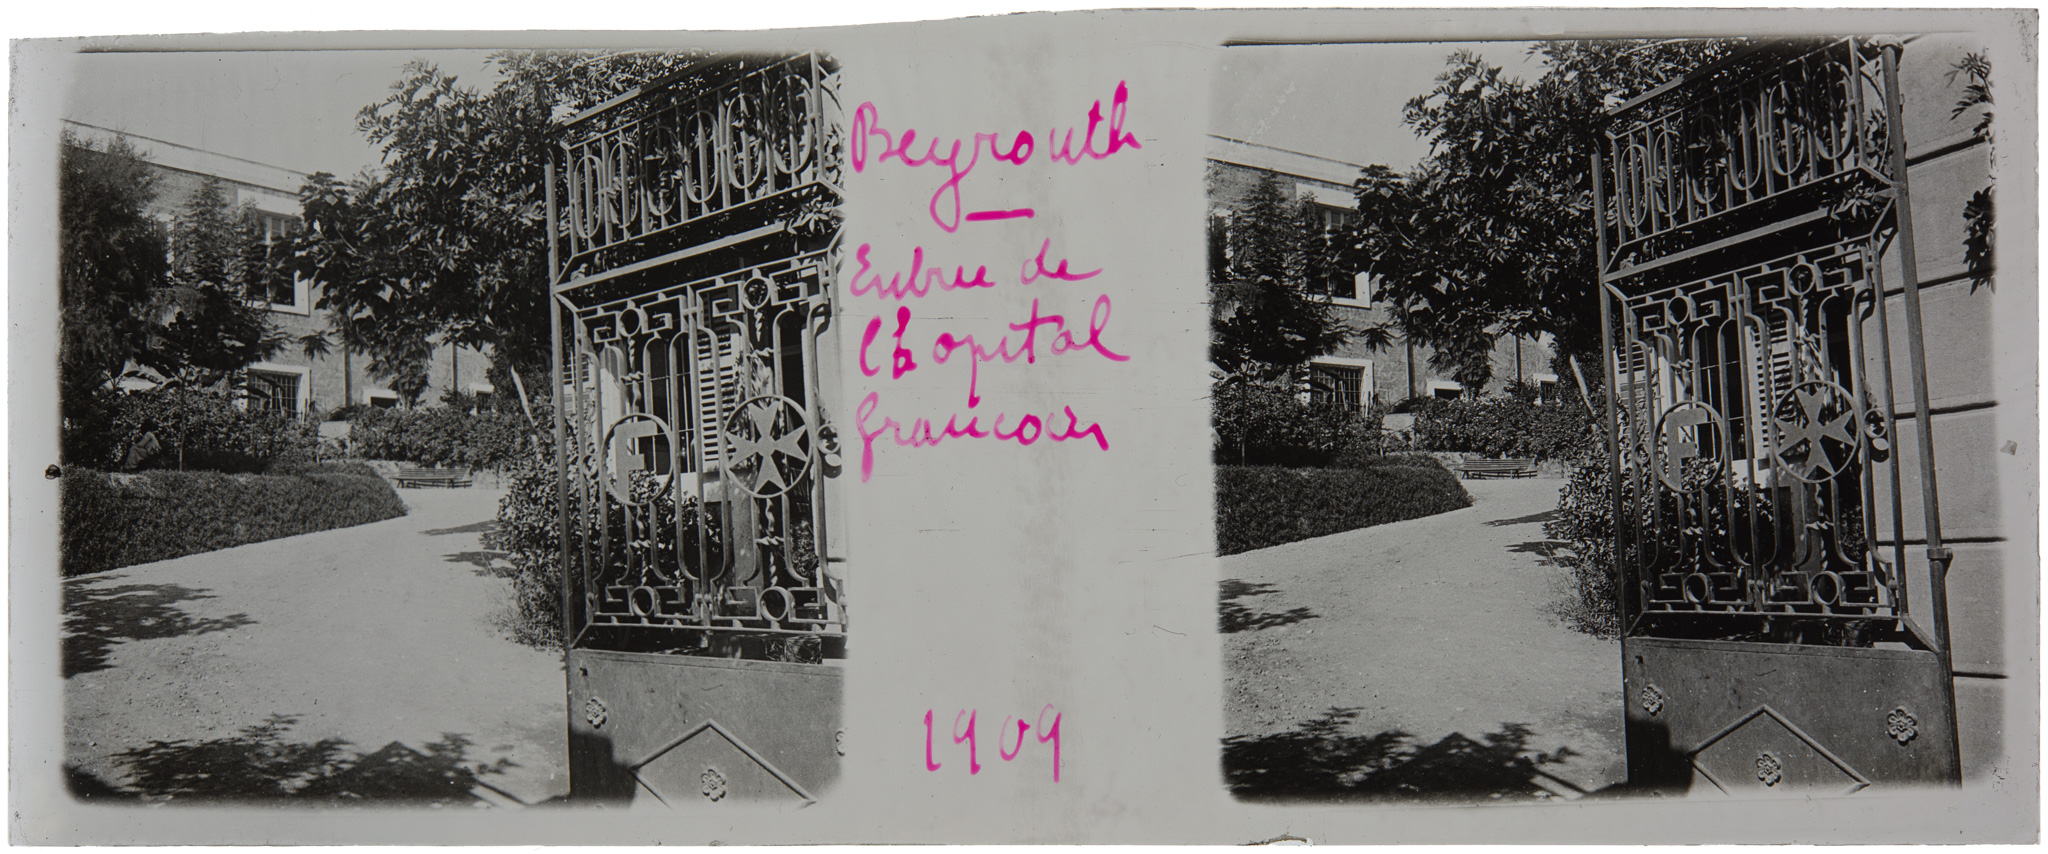 Beyrouth
Entree de
l'hopital
francais
1909
F
F